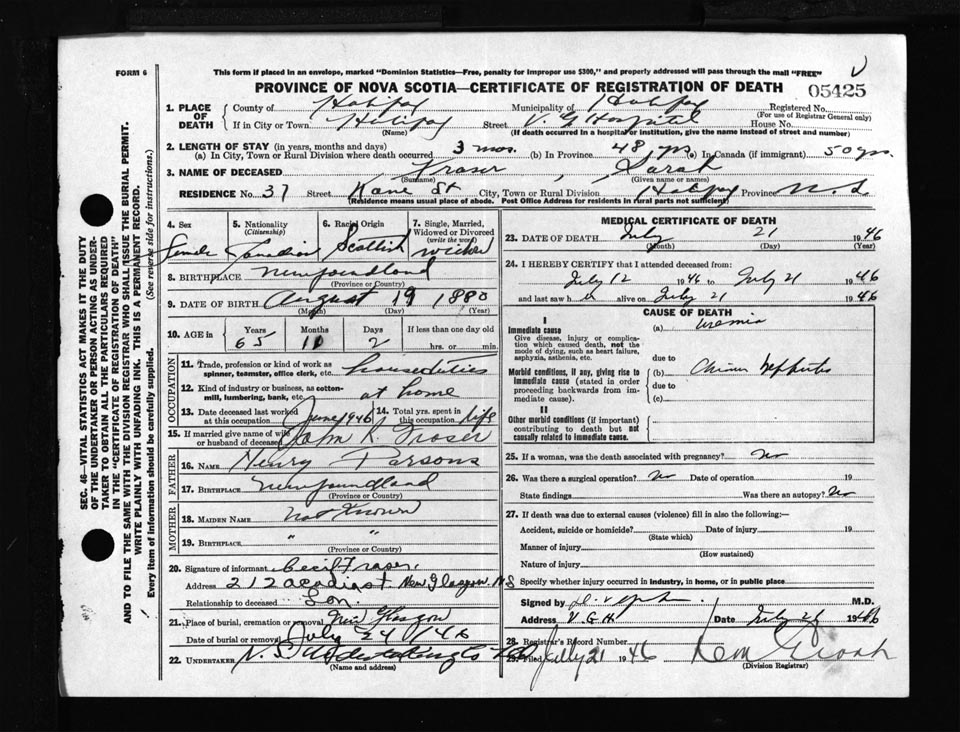 FORM 6
This form if placed in an envelope, marked "Dominion Statistics—Free, penalty for improper use $300," and properly addressed will pass through the mail "FREE"
PROVINCE OF NOVA SCOTIA—CERTIFICATE OF REGISTRATION OF DEATH
05425
1. PLACE OF DEATH
County of Halifax Municipality of Halifax Registered No.
(For use of Registrar General only)
If in City or Town Halifax Street V. G Hospital House No.
(Name) (If death occurred in a hospital or institution, give the name instead of street and number)
2. LENGTH OF STAY (in years, months and days)
(a) In City, Town or Rural Division where death occurred 3 mos. (b) In Province 48 yrs (c) In Canada (if immigrant) 50 yrs.
3. NAME OF DECEASED Fraser, Sarah
(Surname) (Given name or names)
RESIDENCE No. 37 Street Kane St City, Town or Rural Division Halifax Province N.S.
(Residence means usual place of abode. Post Office Address for residents in rural parts not sufficient)
4. Sex Female
5. Nationality (Citizenship) Canadian
6. Racial Origin Scottish
7. Single, Married, Widowed or Divorced (write the word) widow
8. BIRTHPLACE Newfoundland
(Province or Country)
9. DATE OF BIRTH August 19 1880
(Month) (Day) (Year)
10. AGE in Years Months Days If less than one day old
65 11 2 hrs. or min.
OCCUPATION
11. Trade, profession or kind of work as spinner, teamster, office clerk, etc. house duties
12. Kind of industry or business, as cotton-mill, lumbering, bank, etc. at home
13. Date deceased last worked at this occupation June 1946
14. Total yrs. spent in this occupation life
15. If married give name of wife or husband of deceased John K. Fraser
FATHER
16. NAME Henry Parsons
17. BIRTHPLACE Newfoundland
(Province or Country)
MOTHER
18. MAIDEN NAME Not Known
19. BIRTHPLACE " "
(Province or Country)
20. Signature of informant Cecil Fraser.
Address 212 Acadia St New Glasgow NS
Relationship to deceased Son
21. Place of burial, cremation or removal New Glasgow
Date of burial or removal July 24/46
22. UNDERTAKER N.S. Undertaking Co
(Name and address)
MEDICAL CERTIFICATE OF DEATH
23. DATE OF DEATH July 21 1946
(Month) (Day) (Year)
24. I HEREBY CERTIFY that I attended deceased from:
July 12 1946 to July 21 1946
and last saw h er alive on July 21 1946
CAUSE OF DEATH
I
Immediate cause
Give disease, injury or complication which caused death, not the mode of dying, such as heart failure, asphyxia, asthenia, etc.
(a) uremia
due to
Morbid conditions, if any, giving rise to immediate cause (stated in order proceeding backwards from immediate cause).
(b) Chronic Nephritis
due to
(c)
II
Other morbid conditions (if important) contributing to death but not causally related to immediate cause.
25. If a woman, was the death associated with pregnancy? No
26. Was there a surgical operation? No Date of operation 19
State findings Was there an autopsy? No
27. If death was due to external causes (violence) fill in also the following:—
Accident, suicide or homicide? Date of injury 19
(State which)
Manner of injury
(How sustained)
Nature of injury
Specify whether injury occurred in industry, in home, or in public place
Signed by M.D.
Address V.G.H. Date July 1946
28. Registrar's Record Number
29. Filed July 21 1946
(Division Registrar)
SEC. 46—VITAL STATISTICS ACT MAKES IT THE DUTY
OF THE UNDERTAKER OR PERSON ACTING AS UNDER-
TAKER TO OBTAIN ALL THE PARTICULARS REQUIRED
IN THE "CERTIFICATE OF REGISTRATION OF DEATH"
AND TO FILE THE SAME WITH THE DIVISION REGISTRAR WHO SHALL ISSUE THE BURIAL PERMIT.
WRITE PLAINLY WITH UNFADING INK. THIS IS A PERMANENT RECORD.
Every item of information should be carefully supplied. (See reverse side for instructions.)